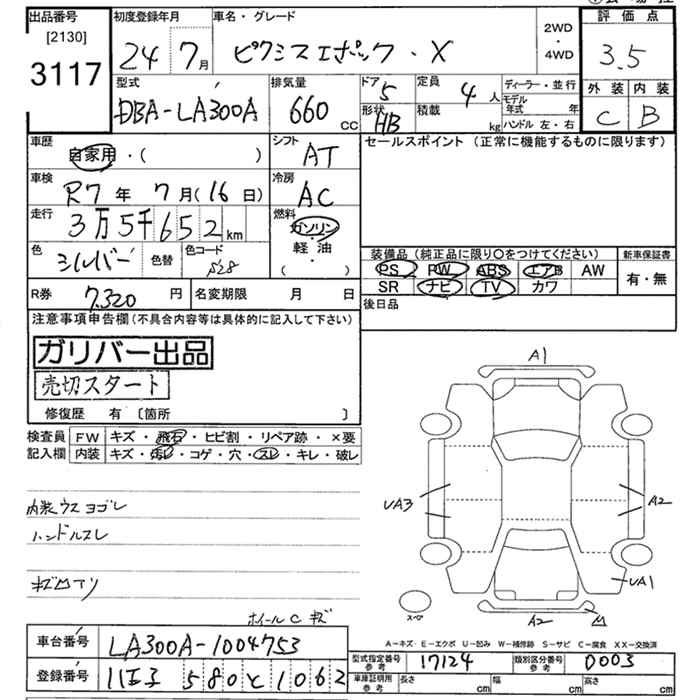 出品番号 初度登録年月 車名・グレード 評価点
[2130] 24年 7月 ピクシスエポック・X 2WD・4WD 3.5
3117 外装 内装
型式 排気量 ドア 定員 ディーラー・並行
DBA-LA300A 660cc 5 4人 モデル年式 年 C B
形状 積載 ハンドル 左・右
HB kg
車歴 シフト セールスポイント (正常に機能するものに限ります)
自家用・( ) AT
車検 冷房
R7年 7月(16日) AC
走行 燃料
3万5千652km ガソリン・軽油 ( )
色 色替 色コード 装備品 (純正品に限り○をつけてください) 新車保証書
シルバー S28 PS PW ABS エアB AW 有・無
R券 7,320円 名変期限 月 日 SR ナビ TV カワ
注意事項申告欄(不具合内容等は具体的に記入して下さい) 後日品
ガリバー出品
売切スタート
修復歴 有 〔箇所 〕
A1
検査員 FW キズ・飛石・ヒビ割・リペア跡・×要
記入欄 内装 キズ・汚レ・コゲ・穴・スレ・キレ・破レ
UA3 A2
内装ウスヨゴレ
ハンドルスレ
キズ凹アリ
UA1
ホイールCキズ A2
A-キズ・E-エクボ U-凹み W-補修跡 S-サビ C-腐食 XX-交換済
車台番号 LA300A-1004753 型式指定番号 参考 17124 類別区分番号 参考 0003
登録番号 八王子 580と1062 車庫証明用 参考 長さ cm 幅 cm 高さ cm